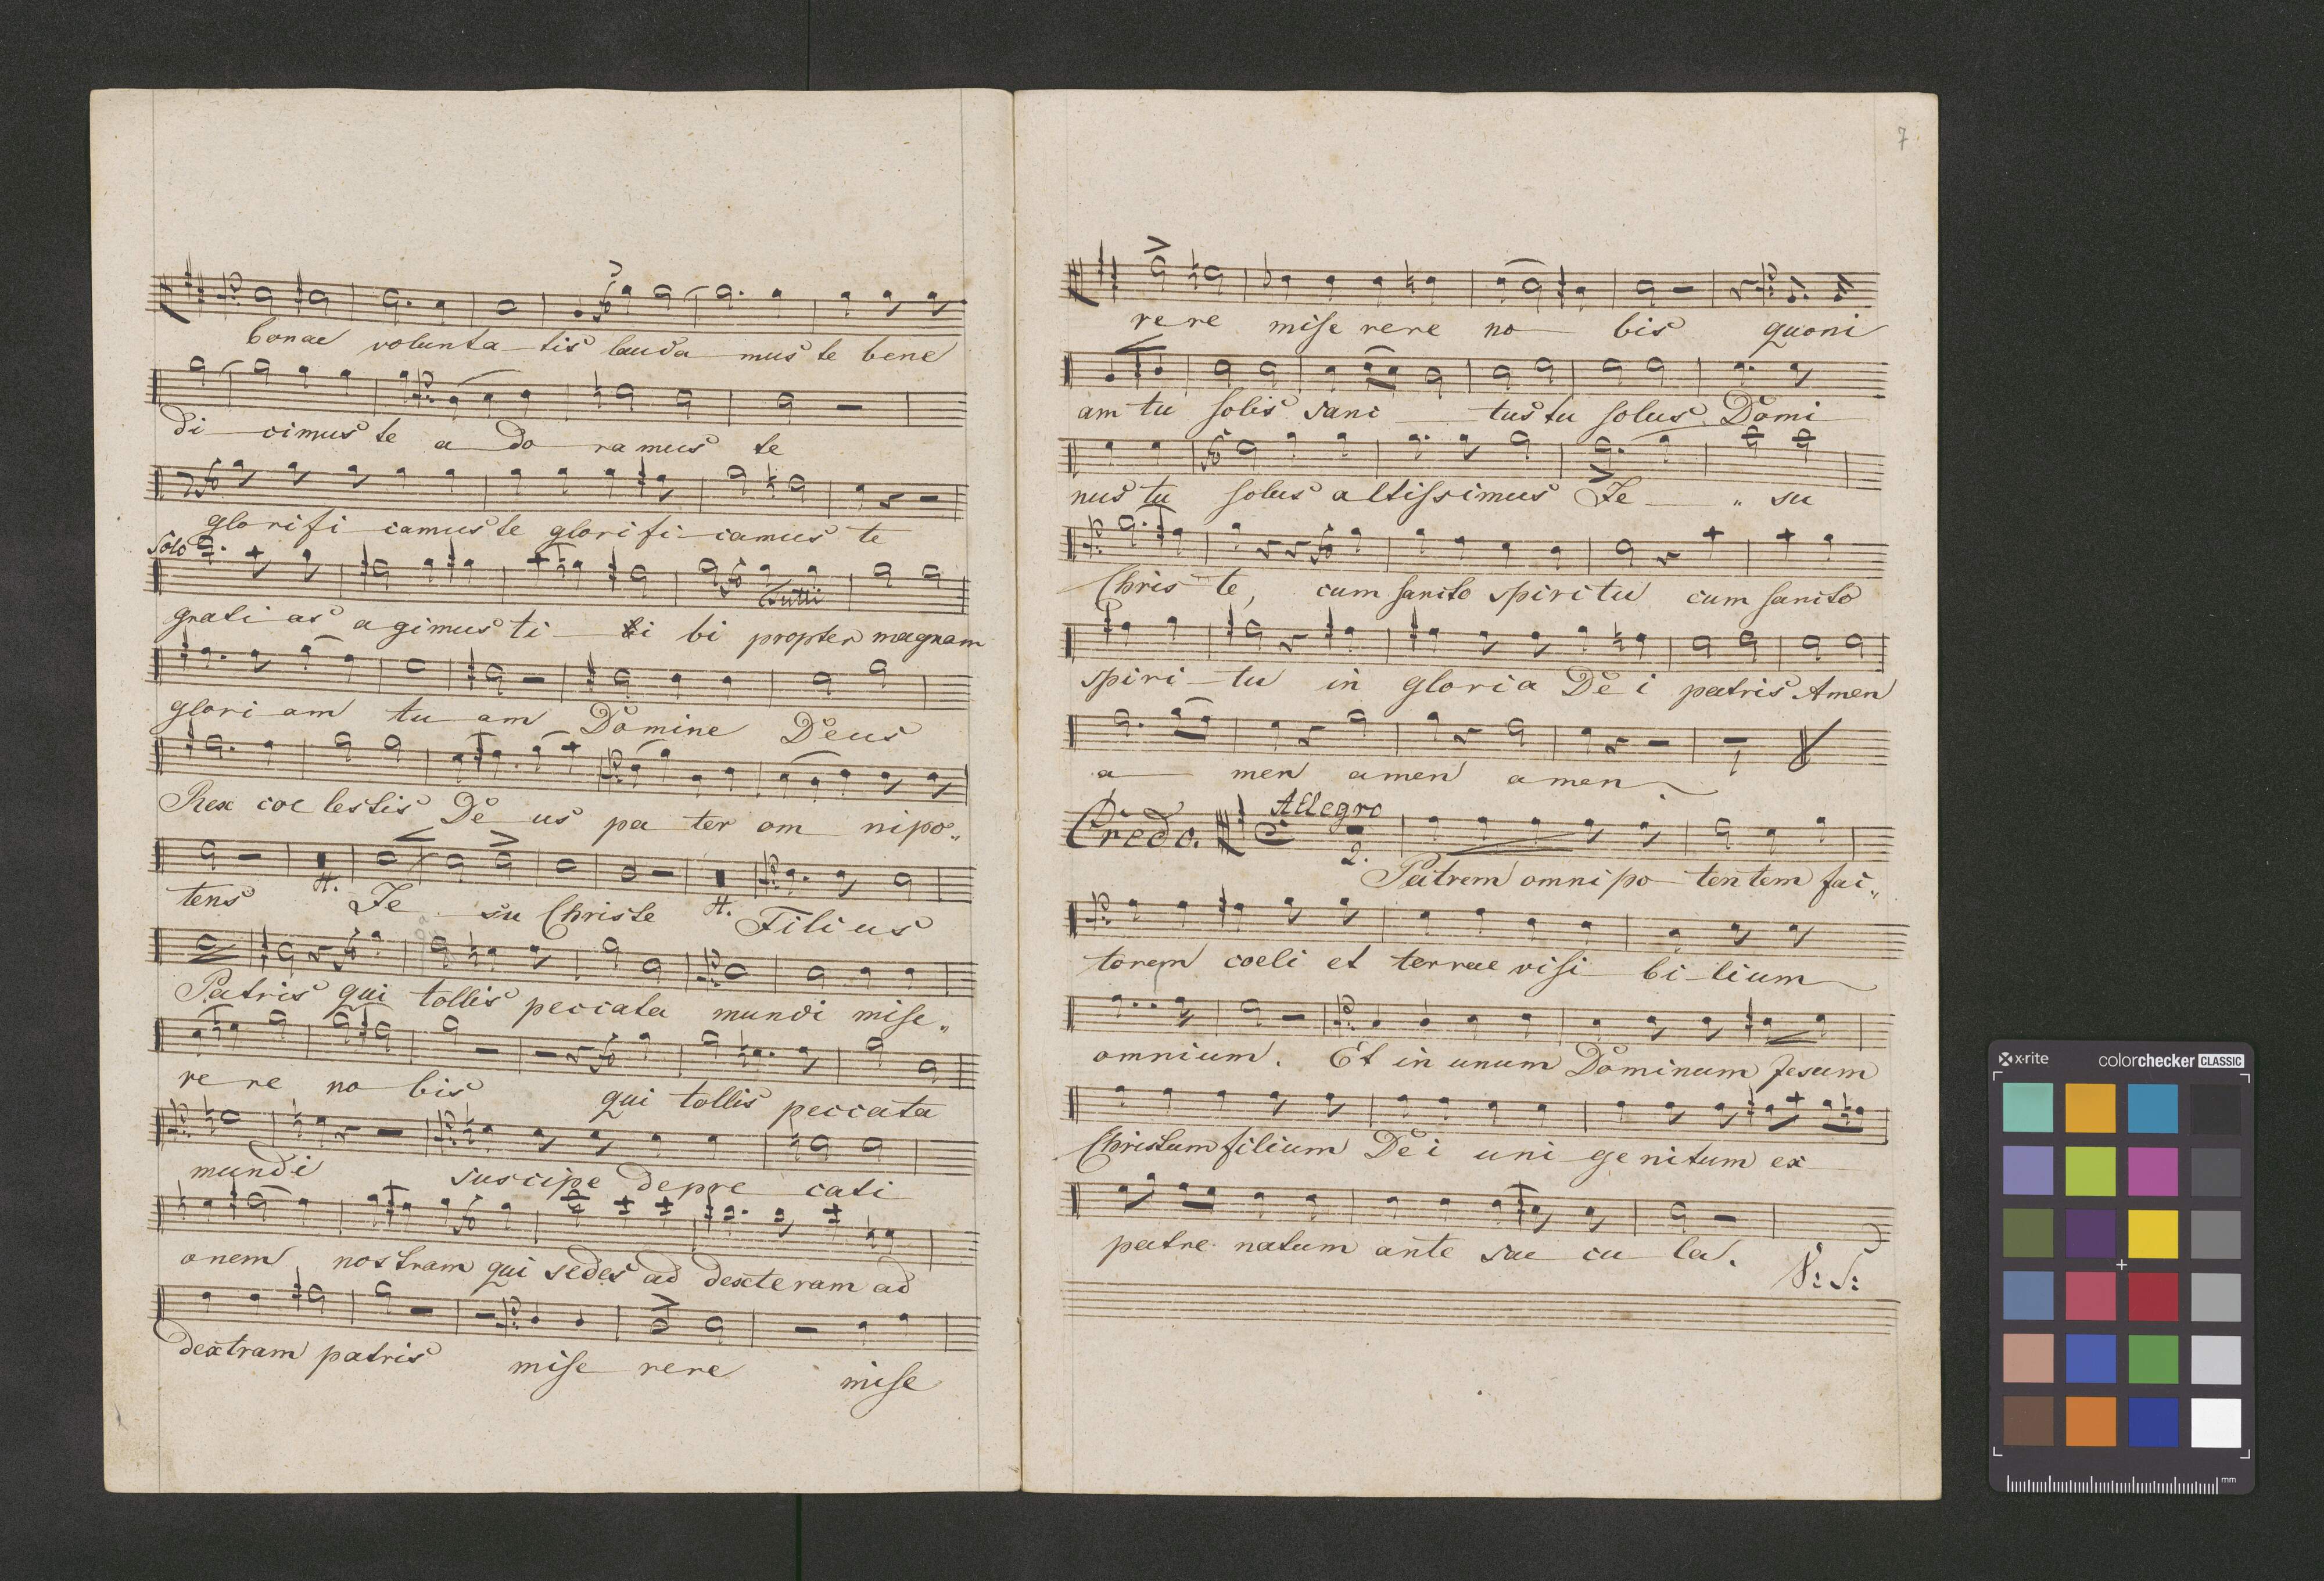 bonae volunta tis lauda mus te bene
di cimus te a do ramus te
glorifi camus te glorifi camus te
Solo
Tutti
grati as agimus ti bi propter magnam
glori am tu am Domine Deus
Rex coe lestis De us pa ter om nipo„
tens Je su Christe Filius
Patris qui tollis peccata mundi mise„
re re no bis qui tollis peccata
mundi suscipe depre cati
onem nostram qui sedes ad dexteram ad
dextram patris mise rere mise
7
rere mise rere no bis quoni
am tu solis sanc tus tu solus Domi
nus tu solus altissimus Je „ su
Chris te, cum sancto spiritu cum sancto
spiri tu in gloria De i patris Amen
a men amen amen
Credo. Allegro
2.
Patrem omnipo tentem fac„
torem coeli et terrae visi bi lium
omnium. Et in unum Dominum Jesum
Christum filium Dei uni genitum ex
patre natum ante sae cu la.
V: S:
x-rite colorchecker CLASSIC
mm